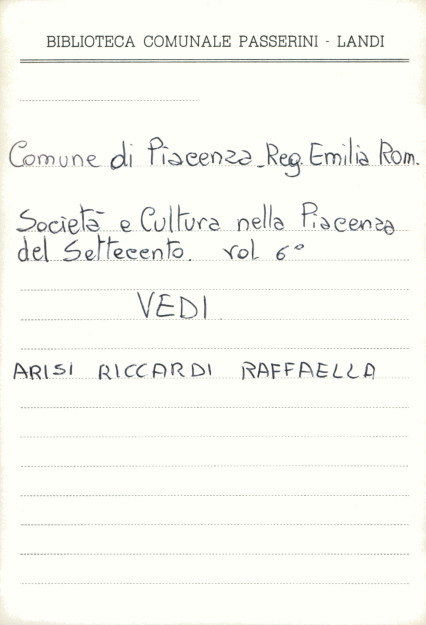 BIBLIOTECA COMUNALE PASSERINI - LANDI
Comune di Piacenza - Reg. Emilia Rom.
Società e Cultura nella Piacenza
del Settecento. vol 6°
VEDI
ARISI RICCARDI RAFFAELLA